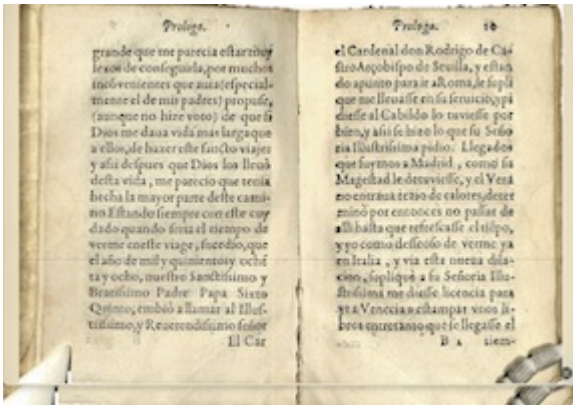 Prologo.
grande que me parecia estar muy
lexos de conseguirla, por muchos
inconvenientes que auia (especial-
mente el de mis padres) propuse,
(aunque no hize voto) de que si
Dios me daua vida mas larga que
a ellos, de hazer este sancto viaje:
y assi despues que Dios los lleuò
desta vida, me parecio que tenia
hecha la mayor parte deste cami-
no. Estando siempre con este cuy
dado quando seria el tiempo de
verme eneste viage, sucedio, que
el año de mil y quinientos y oché
ta y ocho, nuestro Sanctissimo y
Beatissimo Padre Papa Sixto
Quinto, embiò a llamar al Illus-
trissimo, y Reuerendissimo señor
El Car
Prologo. 10
el Cardenal don Rodrigo de Ca-
stro Arçobispo de Seuilla, y estan
do a punto para ir a Roma, le supli
que me lleuasse en su seruicio, y pi
diesse al Cabildo lo tuviesse por
bien, y assi se hizo lo que su Seño
ria Illustrissima pidio. Llegados
que fuymos a Madrid, como su
Magestad le detuviesse, y el Vera
no entraua tezio de calores, deter
minò por entonces no passar de
alli hasta que refrescasse el tiépo,
y yo como desseoso de verme ya
en Italia, y vía esta nueua dila-
cion, supliquè a su Señoria Illu-
strissima me diesse licencia para
yr a Venecia a estampar vnos li-
bros entretanto que se llegasse el
B 2 tiem-